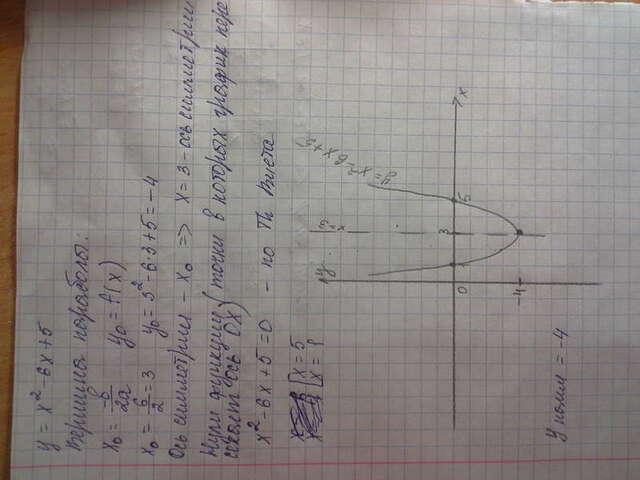 y = x² - 6x + 5
Вершина параболы:
x₀ = -b/2a   y₀ = f(x)
x₀ = 6/2 = 3   y₀ = 3² - 6·3 + 5 = -4
Ось симметрии - x₀ => x = 3 - ось симметрии
Нули функции (точки в которых график пере
секает ось OX)
x² - 6x + 5 = 0 - по Th Виета
[x = 5
[x = 1
y
x = 3
y = x² - 6x + 5
0 1 3 5 x
-4
y наим = -4